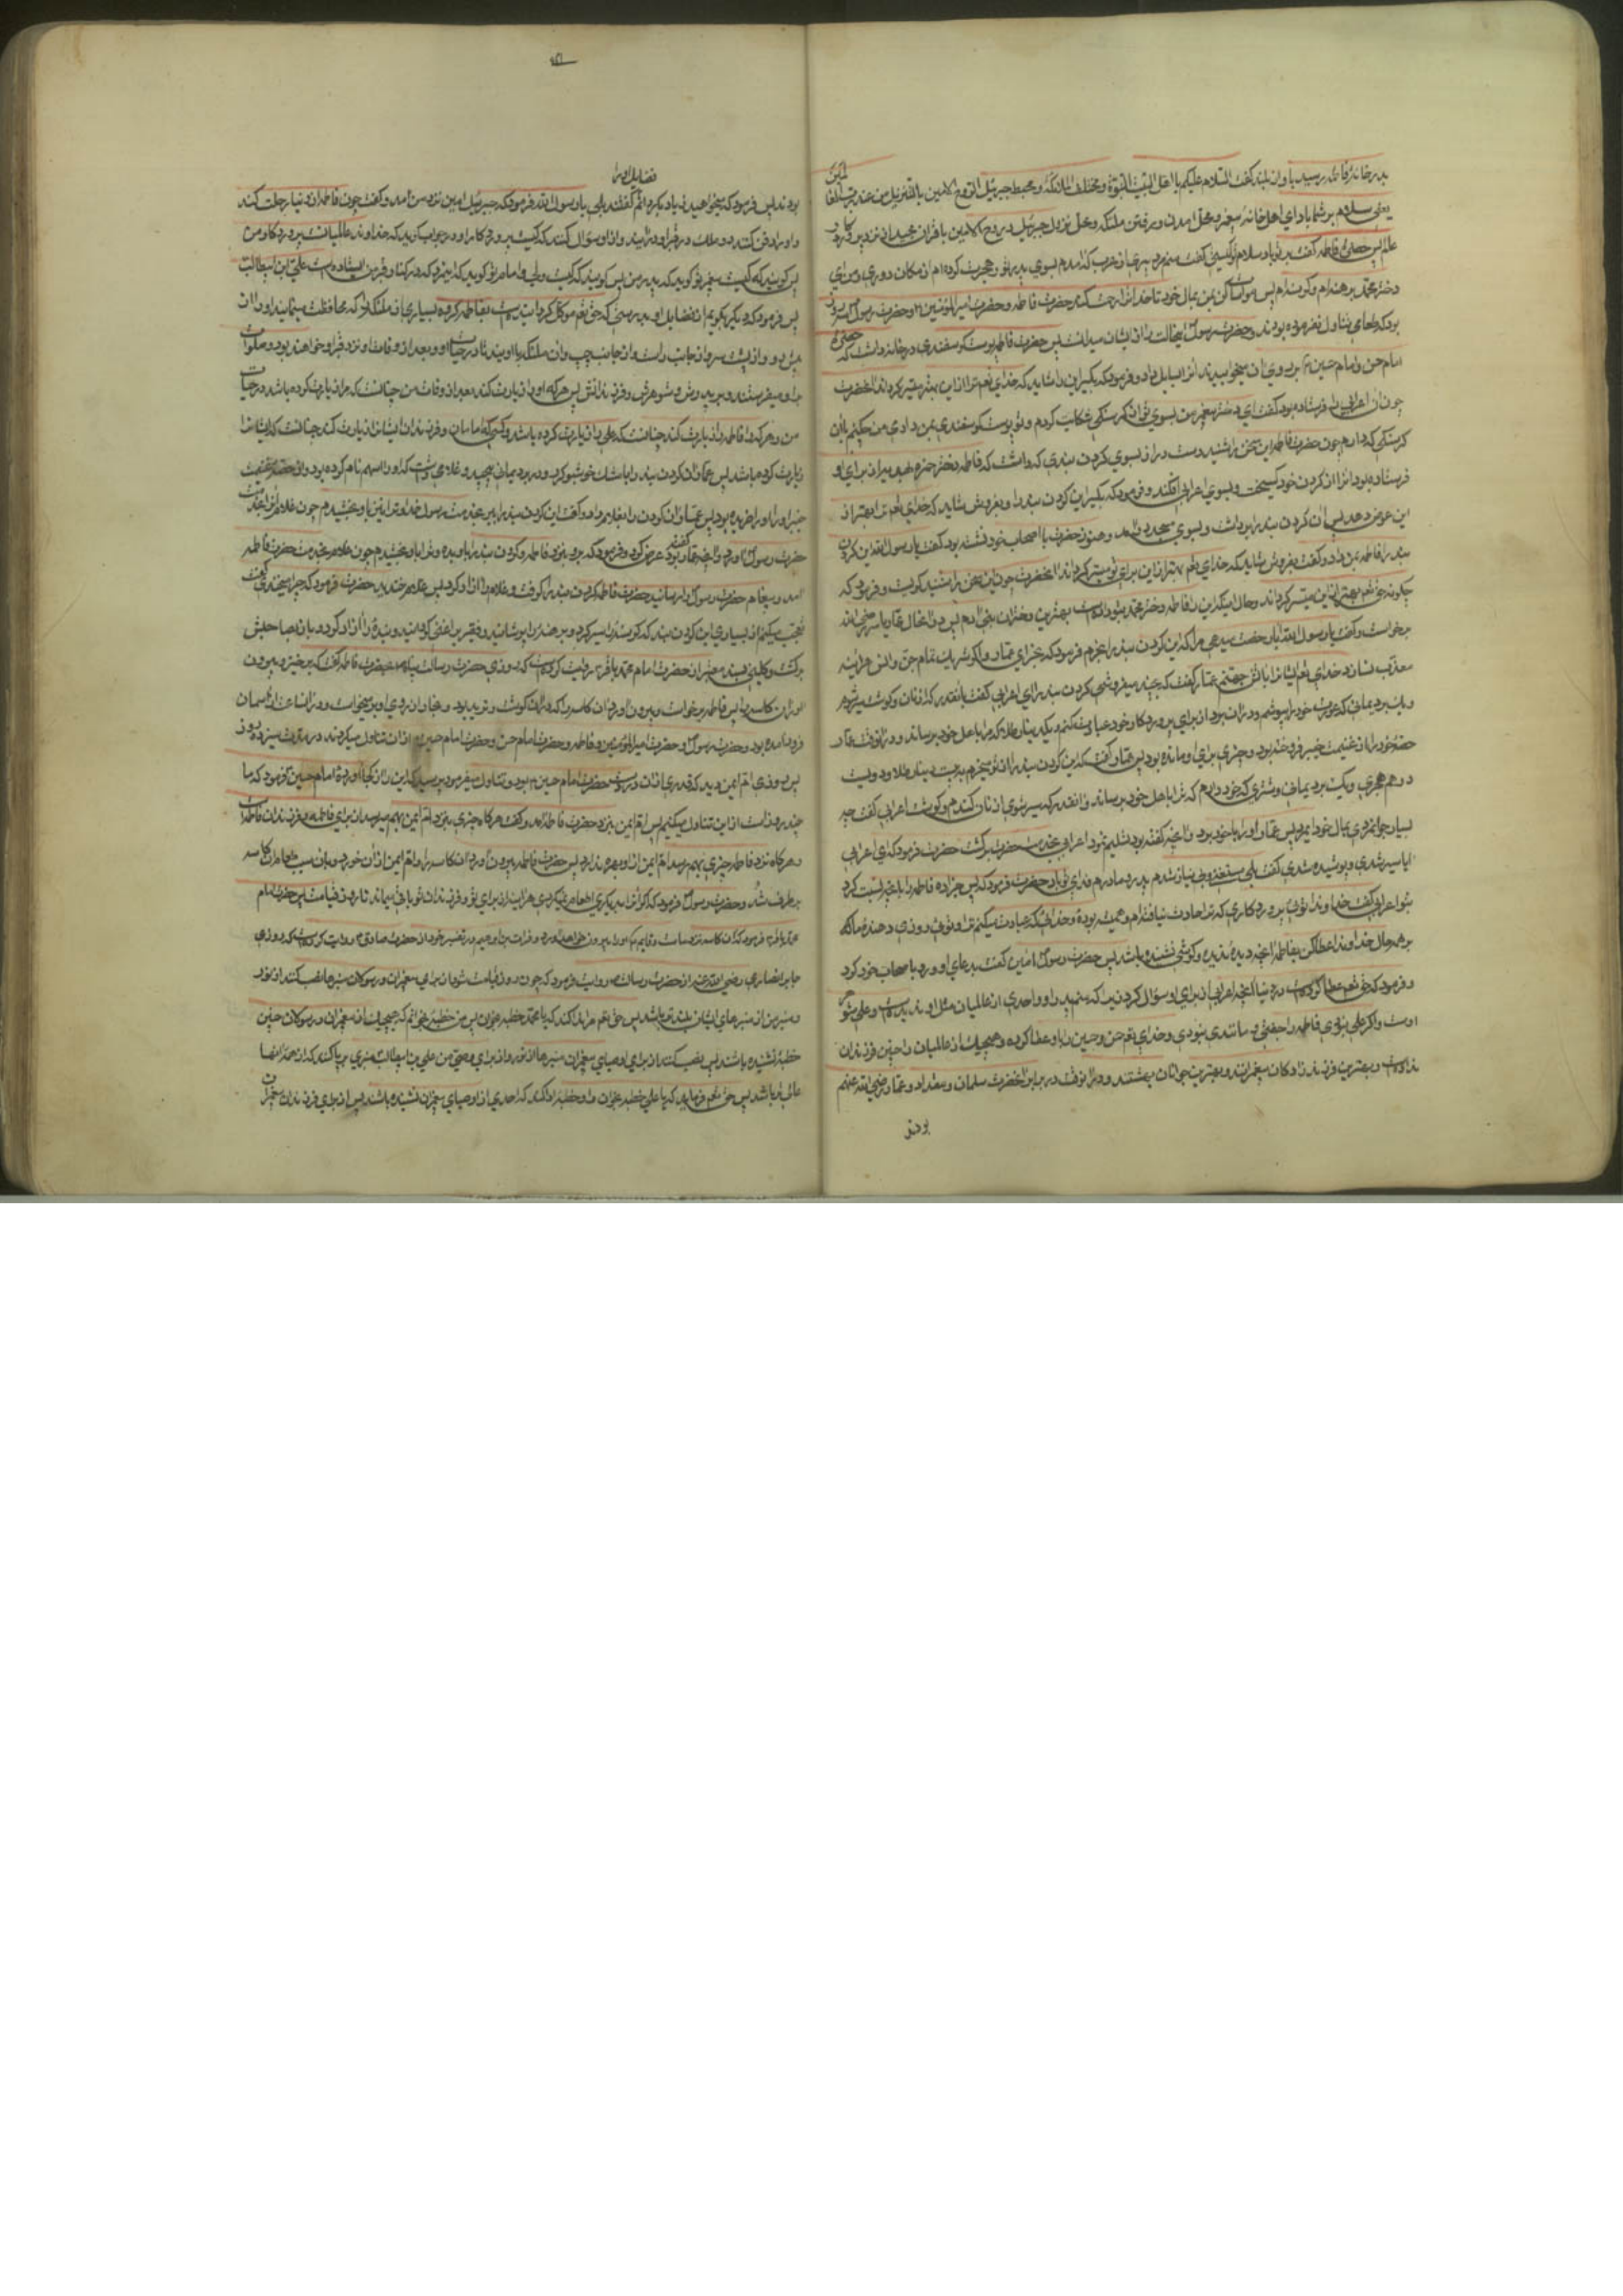 بدر خانهٔ فاطمه رسید باواز بلند گفت السلام علیکم یا اهل البیت النبوة و مختلف الملائکة و محبط جبرئیل الروح الامین بالتنزیل من عند رب العالمین
یعنی سلام بر شما باد ای اهل خانهٔ پیغمبر و محل امدن و رفتن ملئکه و محل نزول جبرئیل روح الامین با قران مجید از نزد پروردگار
فاطمه گفت بر تو باد سلام تو کیستی گفت منم مردی از عرب که امدم بسوی پدر تو و هجرت کرده‌ام از مکان دوری و من ای
دختر محمد برهنه‌ام و گرسنه‌ام پس مواسات کن بمن بمال خود تا خدا ترا رحمت کند و حضرت فاطمه و حضرت امیر المؤمنین و حضرت رسول سه روز
بود که طعامی تناول نفرموده بودند و حضرت رسول اینحالت را از ایشان میدانست پس حضرت فاطمه پوست گوسفندی در خانه داشت که
امام حسن و امام حسین بر روی ان میخوابیدند انرا بسایل داد و فرمود که بگیر این را شاید که خدای تعم ترا از این بهتر میسر گرداند
اعرابی گفت ای دختر پیغمبر من بسوی تو از گرسنگی شکایت کردم و تو پوست گوسفندی بمن دادی من چکنم باان
گرسنگی که دارم چون حضرت فاطمه این سخن را شنید دست دراز بسوی گردن بندی که داشت که فاطمه دختر حمزه
فرستاده بود انرا از گردن خود گسیخت و بسوی اعرابی افکند و فرمود که بگیر این گردن بند را و بفروش شاید که خدای تعم ترا بهتر از
این عوض دهد پس ان گردن بند را برداشت و بسوی مسجد امد و هنوز حضرت با اصحاب خود نشسته بود گفت یا رسول الله این گردن
بند را فاطمه بمن داد و گفت بفروش شاید که خدای تعم بهتر از این برای تو میسر گرداند انحضرت چون این سخن را شنید گریست و فرمود که
چگونه حق تعم بهتر از این میسر نگرداند و حال اینکه این را فاطمه دختر محمد بتو داده است بهترین دختران
برخواست و گفت یا رسول الله ایا رخصت میدهی مرا که این گردن بند را بخرم فرمود که بخر ای عمار و اگر شریک شوند تمام جن و انس
معذب نسازد خدای تعم ایشانرا باتش جهنم عمار گفت که بچند میفروشی گردن بند را ای اعرابی گفت بانقدری که از نان و گوشت سیر شوم
و یک برد یمانی که عورت خود را بپوشم و دران برد از برای پروردگار خود عبادت کنم و یکدینار طلا که مرا باهل خود برساند و در انوقت عمار
حصهٔ خود را از غنیمت خیبر فروخته بود و چیزی برای او مانده بود پس عمار گفت که این گردن بند را از تو میخرم به بیست دینار طلا و دویست
درهم هجری و یک برد یمانی و شتری که خود دارم که ترا باهل خود برساند و انقدر که سیر شوی از نان گندم و گوشت اعرابی گفت چه
بسیار جوانمردی بمال خود ایمرد پس عمار او را با خود برد و انچه گفته بود تسلیم نمود اعرابی بخدمت حضرت برگشت حضرت فرمود که ای اعرابی
ایا سیر شدی و پوشیده شدی گفت بلی مستغنی و بی نیاز شدم پدر و مادرم فدای تو باد حضرت فرمود که پس جزا ده فاطمه را
اعرابی گفت خداوندا توئی پروردگاری که ترا حادث نیافته‌ام و همیشه بودهٔ و خدائی که عبادت میکنم ترا و توئی روزی دهندهٔ ما
بر همه حال خداوندا عطا کن بفاطمه انچه دیدهٔ ندیده و گوشی نشنیده باشد پس حضرت رسول امین گفت بدعای او و رو باصحاب خود کرد
و فرمود که حق تعم عطا کرده است در دنیا انچه اعرابی از برای او سؤال کرد زیرا که منم پدر او و احدی از عالمیان مثل او ندیده است و علی شوهر
اوست و اگر علی نبودی فاطمه را جفتی و مانندی نبودی و خدای تعم حسن و حسین را باو عطا کرده و هیچیک از عالمیان را چنین فرزندان
نداده است و بهترین فرزند زادگان پیغمبرانند و بهترین جوانان بهشتند و در انوقت در برابر انحضرت سلمان و مقداد و عمار رضی الله عنهم
بودند
فضایل او را
بودند پس فرمود که میخواهید زیاد بگویم گفتند بلی یا رسول الله فرمود که جبرئیل امین نزد من امد و گفت چون فاطمه از دنیا رحلت کند
و او را دفن کنند دو ملک در قبر او در آیند و از او سؤال کنند که کیست پروردگار تو او در جواب گوید که خداوند عالمیان است پروردگار من
پس گویند که کیست پیغمبر تو گوید که پدر من پس گویند که کیست ولی و امام تو گوید که اینمرد که در کنار قبر من ایستاده است علی ابن ابیطالب
پس فرمود که دیگر بگویم از فضایل او بدرستی که حق تعم موکل گردانیده است بفاطمه گروه بسیاری از ملئکه را که محافظت مینمایند او را از
پیش رو و از پشت سر و از جانب راست و از جانب چپ وان ملئکه با اویند تا در حیات او و بعد از وفات او نزد قبر او خواهند بود و صلوات
بر او میفرستند و بر پدرش و شوهرش و فرزندانش پس هر که او را زیارت کند بعد از وفات من چنانست که مرا زیارت کرده باشد در حیات
من و هر که فاطمه را زیارت کند چنانست که علی را زیارت کرده باشد و کسی که امامان و فرزندان ایشانرا زیارت کند چنانست که ایشانرا
زیارت کرده باشد پس عمار ان گردن بند را با مشک خوشبو کرد و در برد یمانی پیچید و غلامی داشت که او را سهم نام کرده بود و از حصهٔ غنیمت
خیبر او را خریده بود پس عمار ان گردن بند را بغلام داد و گفت این گردن بند را ببر بخدمت رسول خدا و ترا نیز باو بخشیدم چون غلام انرا بخدمت
حضرت رسول اورد و انچه عمار گفته بود عرض کرد فرمود که برو بنزد فاطمه و گردن بند را باو بده و ترا باو بخشیدم چون غلام بخدمت حضرت فاطمه
امد و پیغام حضرت رسول را رسانید حضرت فاطمه گردن بند را گرفت و غلام را ازاد کرد پس غلام خندید حضرت فرمود که چرا میخندی گفت
تعجب میکنم از بسیاری این گردن بند که گرسنه را سیر کرد و برهنه را پوشانید و فقیر را غنی گردانید و بنده را ازاد کرد و باز بصاحبش
برگشت و کلینی بسند معتبر از حضرت امام محمد باقر روایت کرده است که روزی حضرت رسالت پناه بحضرت فاطمه گفت که برخیز و بیرون
اور ان کاسه را پس فاطمه برخواست و بیرون اورد ان کاسه را که دران گوشت و ثرید بود و بخار از روی او بر میخواست
فرود امده بود و حضرت رسول و حضرت امیر المؤمنین و فاطمه و حضرت امام حسن و حضرت امام حسین از ان تناول میکردند در مدت سیزده روز
پس روزی ام ایمن دید که قدری از ان در دست حضرت امام حسین بود و تناول میفرمود پرسید که این را از کجا اوردهٔ امام حسین فرمود که ما
چند روز است از این تناول میکنیم پس ام ایمن بنزد حضرت فاطمه امد و گفت هر گاه چیزی بنزد ام ایمن بهم میرسد از برای فاطمه و فرزندان فاطمه است
و هر گاه نزد فاطمه چیزی بهم رسد ام ایمن از او بهره ندارد پس حضرت فاطمه بیرون آورد ان کاسه را و ام ایمن از ان خورد و بان سبب طعام ان کاسه
برطرف شد و حضرت رسول فرمود که اگر انرا بدیگری اطعام نمیکردی هر اینه از برای تو و فرزندان تو باقی میماند تا روز قیامت پس حضرت امام
محمد باقر فرمود که ان کاسه نزد ماست و قایم ما او را بیرون خواهد اورد و فرات بن ابراهیم در تفسیر خود از حضرت صادق روایت کرده است که روزی
جابر انصاری رضی الله عنه از حضرت رسالت روایت فرمود که چون روز قیامت شود از برای پیغمبران و رسولان منبرها نصب کنند از نور
و منبر من از منبرهای ایشان بلندتر باشد پس حق تعم مرا ندا کند که یا محمد خطبه بخوان پس من خطبهٔ بخوانم که هیچیک از پیغمبران و رسولان چنین
خطبهٔ نشنیده باشند پس نصب کنند از برای اوصیای پیغمبران منبرها از نور و از برای وصی من علی بن ابیطالب منبری برپا کنند که از همهٔ انها
عالی‌تر باشد پس حق تعم فرماید که یا علی خطبه بخوان و او خطبهٔ ادا کند که احدی از اوصیای پیغمبران نشنیده باشند پس از برای فرزندان پیغمبران